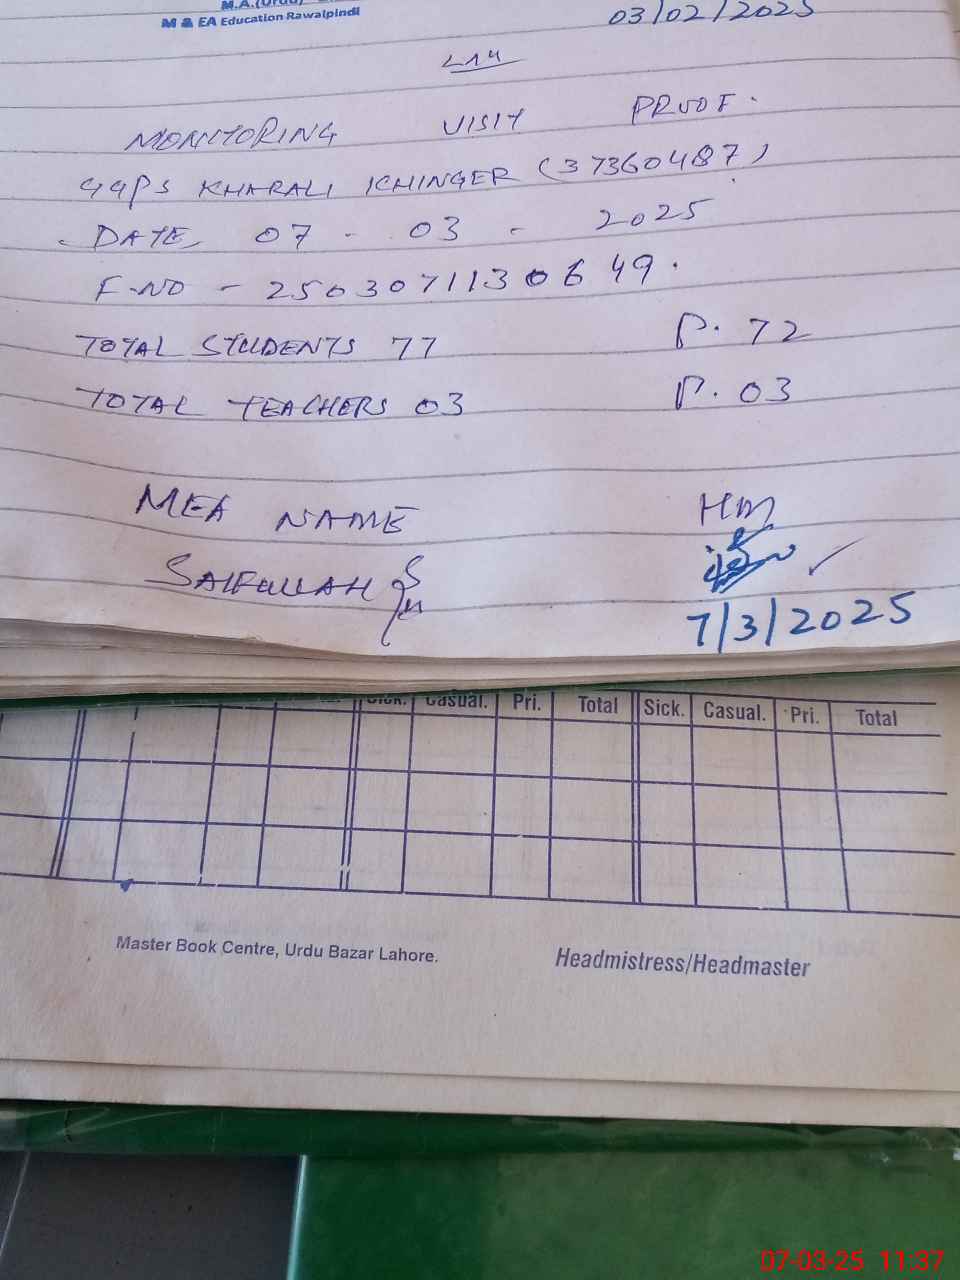 M.A.(Urdu)
M & EA Education Rawalpindi
03/02/2025
MONITORING VISIT PROOF.
GGPS KHARALI KHINGER (37360487)
DATE 07 - 03 - 2025
F.NO - 25030711130649.
TOTAL STUDENTS 77 P. 72
TOTAL TEACHERS 03 P. 03
MEA NAME HM
SAIFULLAH
7/3/2025
Sick. Casual. Pri. Total Sick. Casual. Pri. Total
Master Book Centre, Urdu Bazar Lahore.
Headmistress/Headmaster
07-03-25 11:37